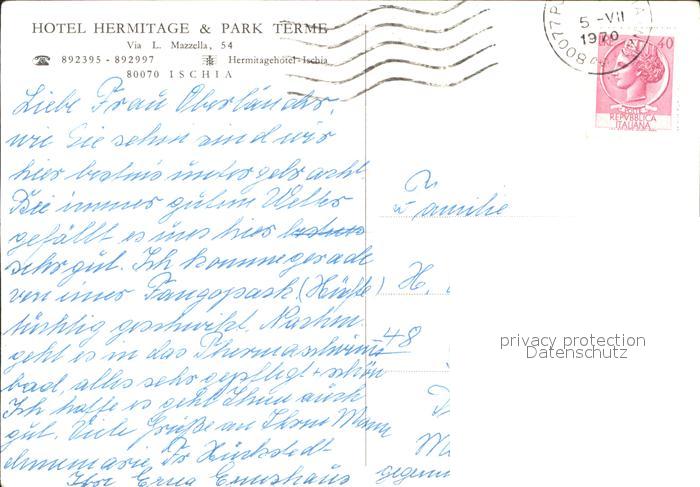 HOTEL HERMITAGE & PARK TERME
Via L. Mazzella, 54
☎ 892395 - 892997 Hermitagehotel-Ischia
80070 ISCHIA
5 -VII
1970
80077
LIRE 40
POSTE
REPVBBLICA
ITALIANA
Liebe Frau Oberländer,
wie Sie sehen sind wir
hier bestens untergebracht.
Bei immer gutem Wetter
gefällt es uns hier bestens
sehr gut. Ich komme gerade
von einer Fangopack. (Hüfte)
tüchtig geschwitzt. Nachm.
geht es in das Thermalschwimm
bad, alles sehr gepflegt + schön
Ich hoffe es geht Ihnen auch
gut. Viele Grüße an Ihren Mann
Annemarie, Fr
Ihre Erna
Familie
H.
48
M
gegenü
privacy protection
Datenschutz